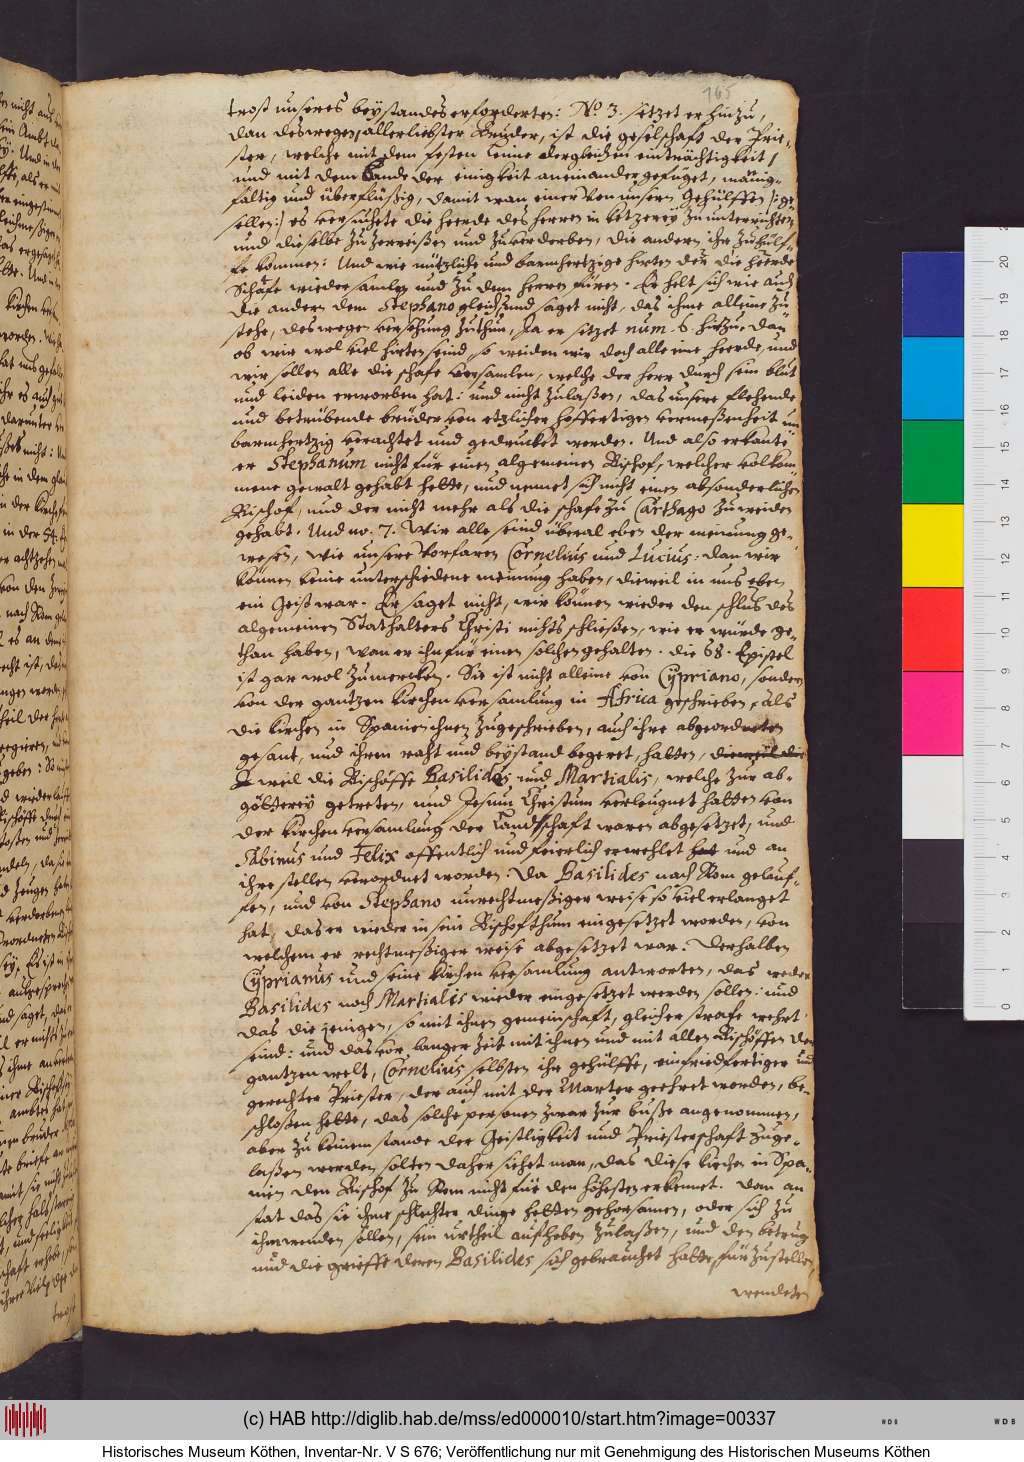 165
trost unseres beystandes erforderten: No. 3. setzet er hinzu,
dan deswegen, allerliebster Bruder, ist die geselschaft der Prie-
ster, welche mit dem festen leime dergleichen einträchtigkeit,
und mit dem Bande der einigkeit aneinander gefüget, mänig-
faltig und überflüßig, damit wan einer von unsern Gehülfften /:ge-
sellen:/ es versuchete die heerde des herren in ketzerey zu unterrichten
und dieselbe zu zerreißen und zuverderben, die andern ihr zuhülf-
fe kommen: Und wie nützliche und barmhertzige hirten der die heerde
Schäfe wieder samlen und zu dem herren füren. Er helt sich wie auch
die andern dem Stephano gleich, und saget nicht, das ihme alleine zu
stehe, deswegen versehung zuthun, Ja er setzet num. 6. hinzu: dan
ob wir wol viel hirten seind, so weiden wir doch alle eine heerde, und
wir sollen alle die schafe versamlen, welche der herr durch sein blut
und leiden erworben hat: und nicht zulaßen, das unsere flehende
und betrübende brüder von etzlicher hoffertigen vermeßenheit un
barmhertzig verachtet und gedrucket werden. Und also erkante
er Stephanum nicht für einen algemeinen Bischof, welcher volkom
mene gewalt gehabt hette, und nennet sich nicht einen absonderlichen
Bischof, und der nicht mehr als die schafe zu Carthago zuweiden
gehabt. Und no. 7. Wir alle seind überal eben der meinung ge-
wesen, wie unsere Vorfaren Cornelius und Lucius: dan wir
können keine unterschiedene meinung haben, dieweil in uns eben
ein Geist war. Er saget nicht, wir können wieder den schlus des
algemeinen Stathalters Christi nichts schließen, wie er würde ge-
than haben, wan er ihn für einen solchen gehalten. die 68. Epistel
ist gar wol zumercken. Sie ist nicht alleine von Cypriano, sondern
von der gantzen kirchen versamlung in Africa geschrieben, als
die kirchen in Spanien ihnen zugeschrieben, auch ihre abgeordneten
gesant, und ihren raht und beystand begeret, hatten, dieweil die
weil die Bischöffe Basilides und Martialis, welche zur ab-
götterey getreten, und Jesum Christum verleugnet hatten von
der kirchen versamlung der Landschaft waren abgesetzet, und
Sabinus und Felix offentlich und feierlich erwehlet hat und an
ihre stellen verordnet worden: Da Basilides nach Rom gelauf-
fen, und von Stephano unrechtmeßiger weise so viel erlanget
hat, das er wieder in sein Bischofthum eingesetzet worden, von
welchem er rechtmeßiger weise abgesetzet war. Derhalben
Cyprianus und seine kirchen versamlung antworten, das weder
Basilides noch Martialis wieder eingesetzet werden sollen: und
das die jenigen, so mit ihnen gemeinschaft, gleicher strafe wehrt
seind: und das vor langer zeit mit ihnen und mit allen Bischöffen der
gantzen welt, Cornelius selbsten ihr gehülffe, ein friedfertiger und
gerechter Priester, der auch mit der Marter geehret worden, be-
schloßen hette, das solche personen zwar zur buße angenommen,
aber zu keinem stande der Geistligkeit und Priesterschaft zuge-
laßen werden solten daher siehet man, das diese kirche in Spa-
nien den Bischof zu Rom nicht für den höhesten erkennet. dan an
stat das sie ihme schlechter dinge hetten gehorsamen, oder sich zu
ihm wenden sollen, sein urtheil aufheben zulaßen, und den betrug
und die grieffe deren Basilides sich gebrauchet hatte, für zustellen,
wendeten
(c) HAB http://diglib.hab.de/mss/ed000010/start.htm?image=00337
Historisches Museum Köthen, Inventar-Nr. V S 676; Veröffentlichung nur mit Genehmigung des Historischen Museums Köthen